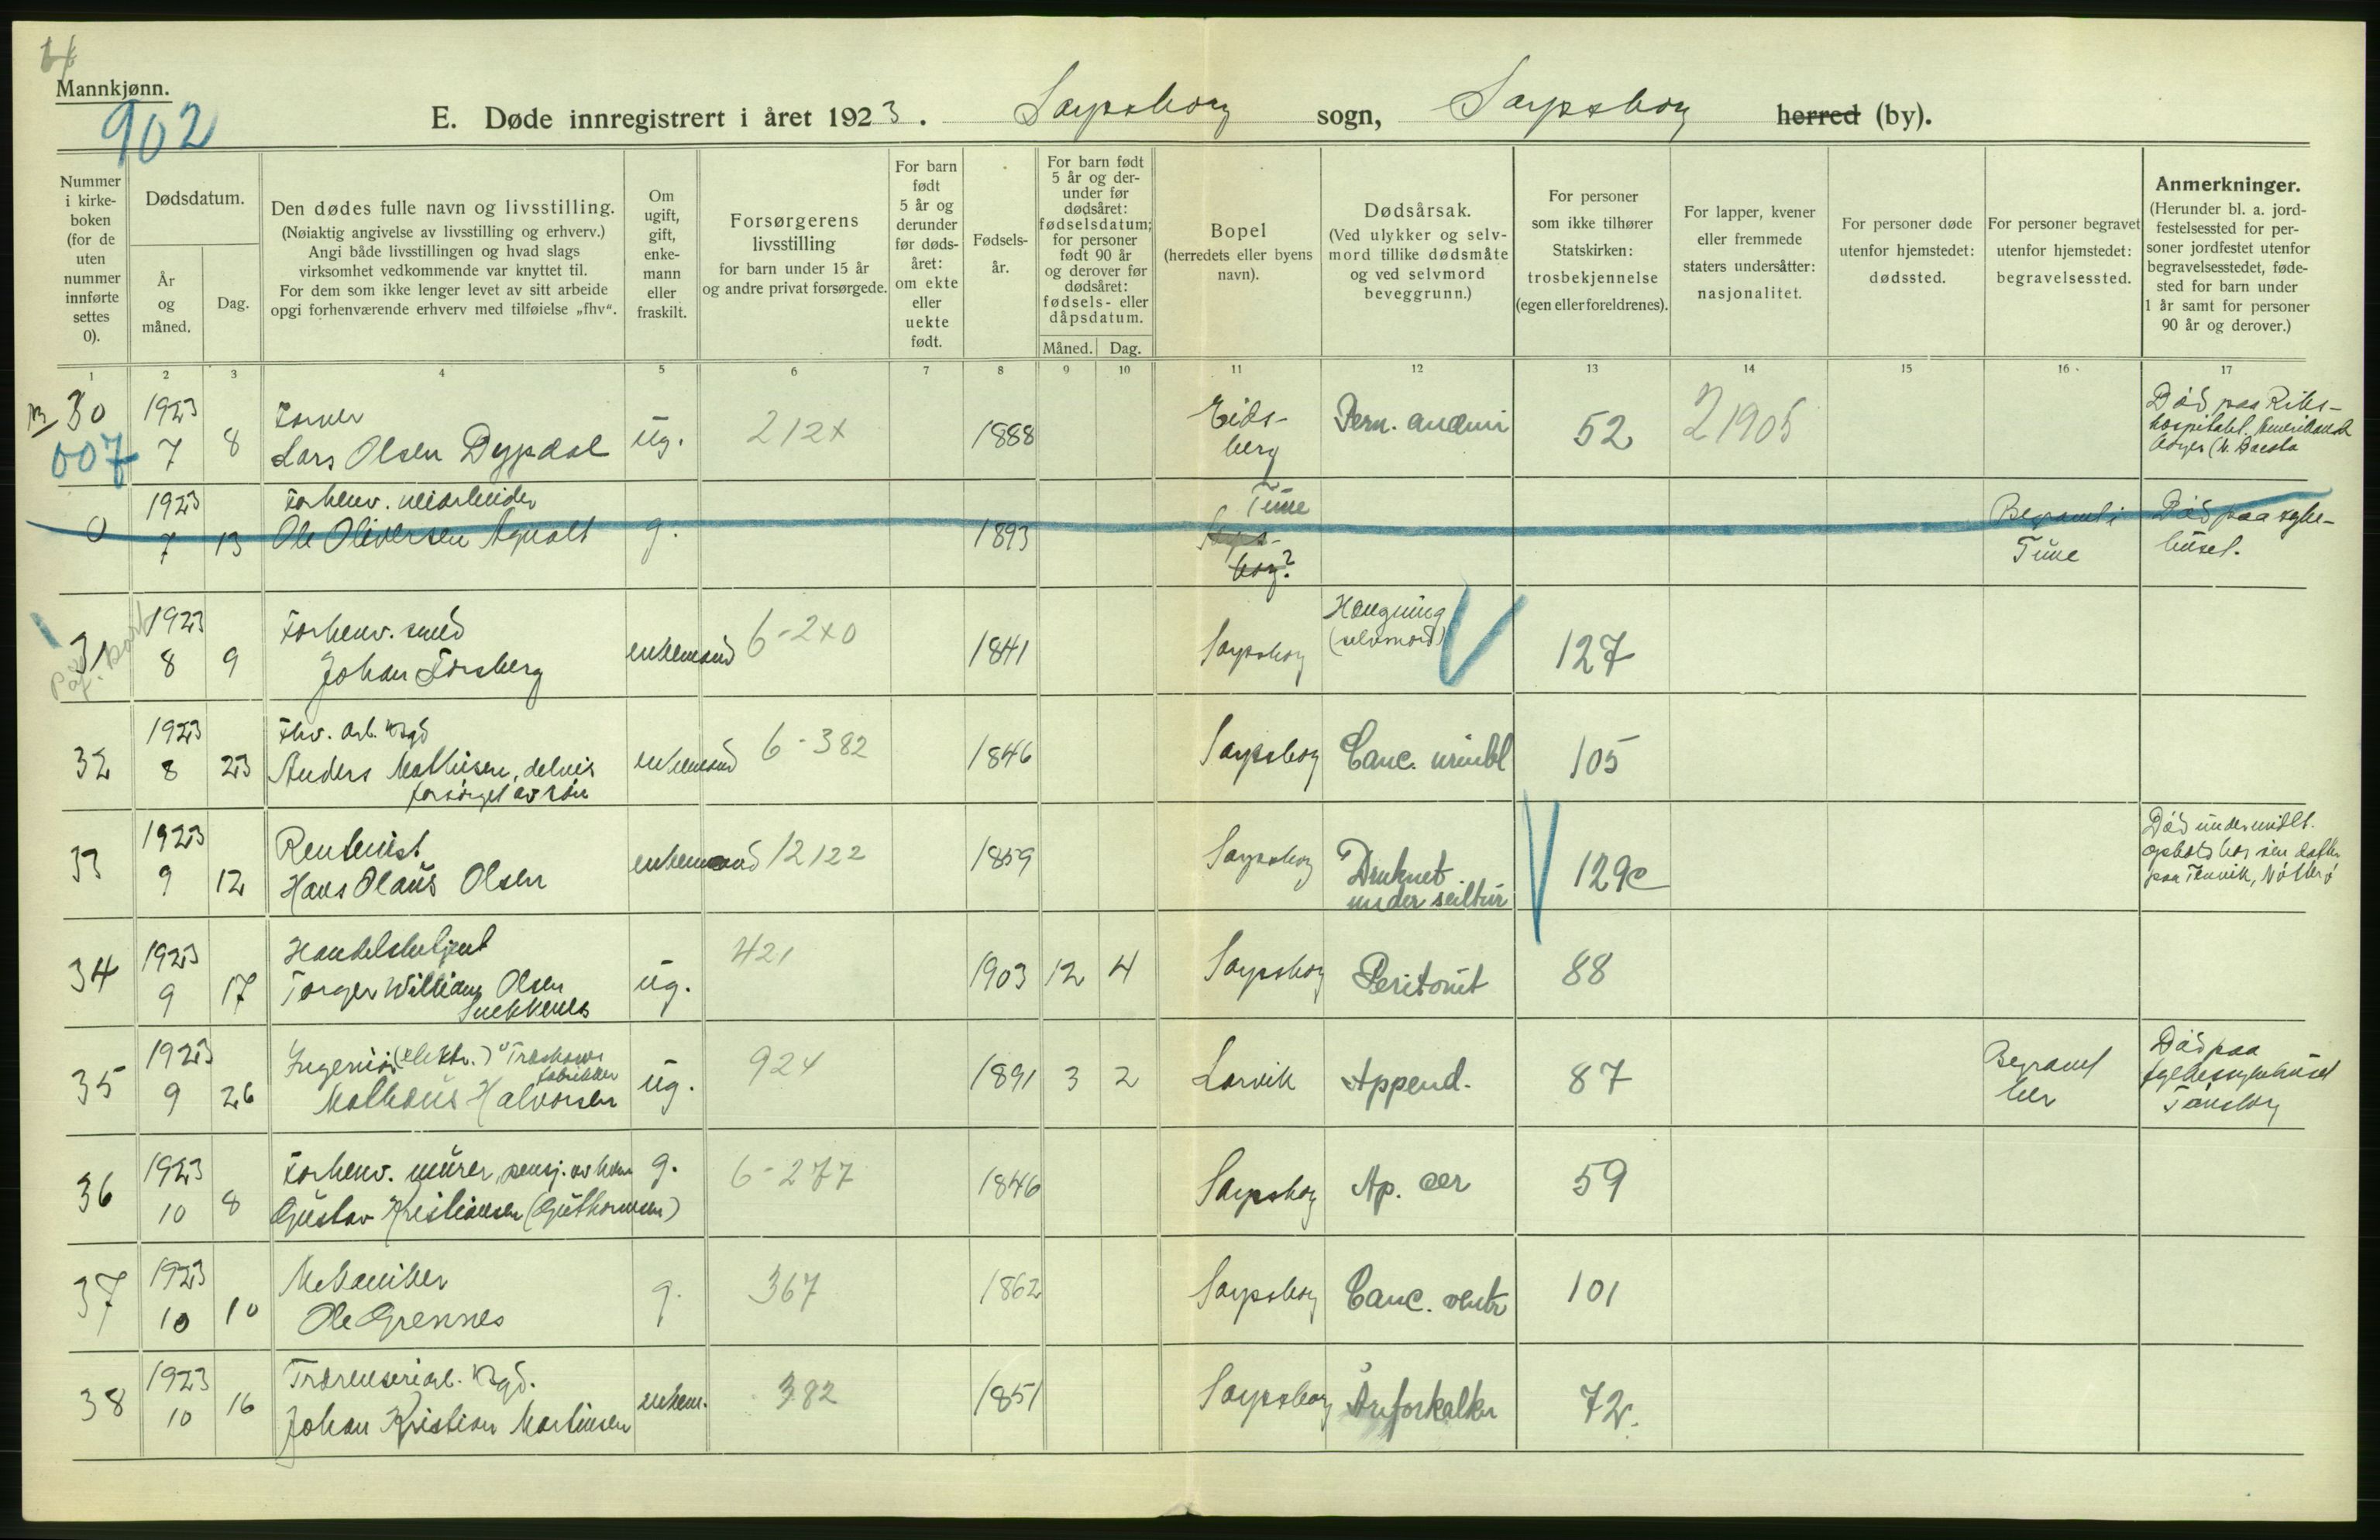 Mannkjønn.
902
E. Døde innregistrert i året 1923. Sarpsborg sogn, Sarpsborg herred (by).
Nummer
i kirke-
boken
(for de
uten
nummer
innførte
settes
0).
Dødsdatum.
År
og
måned.
Dag.
Den dødes fulle navn og livsstilling.
(Nøiaktig angivelse av livsstilling og erhverv.)
Angi både livsstillingen og hvad slags
virksomhet vedkommende var knyttet til.
For dem som ikke lenger levet av sitt arbeide
opgi forhenværende erhverv med tilføielse „fhv“.
Om
ugift,
gift,
enke-
mann
eller
fraskilt.
Forsørgerens
livsstilling
for barn under 15 år
og andre privat forsørgede.
For barn
født
5 år og
derunder
før døds-
året:
om ekte
eller
uekte
født.
Fødsels-
år.
For barn født
5 år og der-
under før
dødsåret:
fødselsdatum;
for personer
født 90 år
og derover før
dødsåret:
fødsels- eller
dåpsdatum.
Måned. Dag.
Bopel
(herredets eller byens
navn).
Dødsårsak.
(Ved ulykker og selv-
mord tillike dødsmåte
og ved selvmord
beveggrunn.)
For personer
som ikke tilhører
Statskirken:
trosbekjennelse
(egen eller foreldrenes).
For lapper, kvener
eller fremmede
staters undersåtter:
nasjonalitet.
For personer døde
utenfor hjemstedet:
dødssted.
For personer begravet
utenfor hjemstedet:
begravelsessted.
Anmerkninger.
(Herunder bl. a. jord-
festelsessted for per-
soner jordfestet utenfor
begravelsesstedet, føde-
sted for barn under
1 år samt for personer
90 år og derover.)
1 2 3 4 5 6 7 8 9 10 11 12 13 14 15 16 17
30 1923
007 7 8 Lars Olsen Dypdal ug. 212x 1888 Eids-
berg Pern. anæmi 52 21905
Død paa Riks-
hospitalet.
0 1923 7 13 Forhenv.
Ole Oliversen Agnalt g. 1893 Tune
Sarps-
borg? Begravet i
Tune Død paa syke-
huset.
31 1923 8 9 Forhenv. smed
Johan Forsberg enkemand 6-2x0 1841 Sarpsborg Hængning
(selvmord) 127
32 1923 8 23 Fhv. arb.
Anders Mathisen, delvis
forsørget av søn enkemand 6-382 1846 Sarpsborg Canc. 105
33 1923 9 12 Rentenist
Hans Olaus Olsen enkemand 12122 1859 Sarpsborg Druknet
under seiltur 129c
Død under midlt.
ophold hos sin datter
paa Tenvik, Nøtterø
34 1923 9 17 Handelsbetjent
Torger William Olsen
ug. 421 1903 12 4 Sarpsborg Peritonit 88
35 1923 9 26 Ingeniør (elektr.)
fabrikker
Halvorsen ug. 924 1891 3 2 Larvik Append. 87 Begravet
her Død paa
fylkessykehuset
Tønsberg
36 1923 10 8 Forhenv. murer, pensj. av
Gustav Kristiansen (Guthormsen) g. 6-277 1846 Sarpsborg Ap. cer 59
37 1923 10 10 Mekaniker
Ole Grennes g. 367 1862 Sarpsborg Canc. ventr 101
38 1923 10 16
Johan Kristian Martinsen enkem. 382 1851 Sarpsborg Åreforkalkn 72.